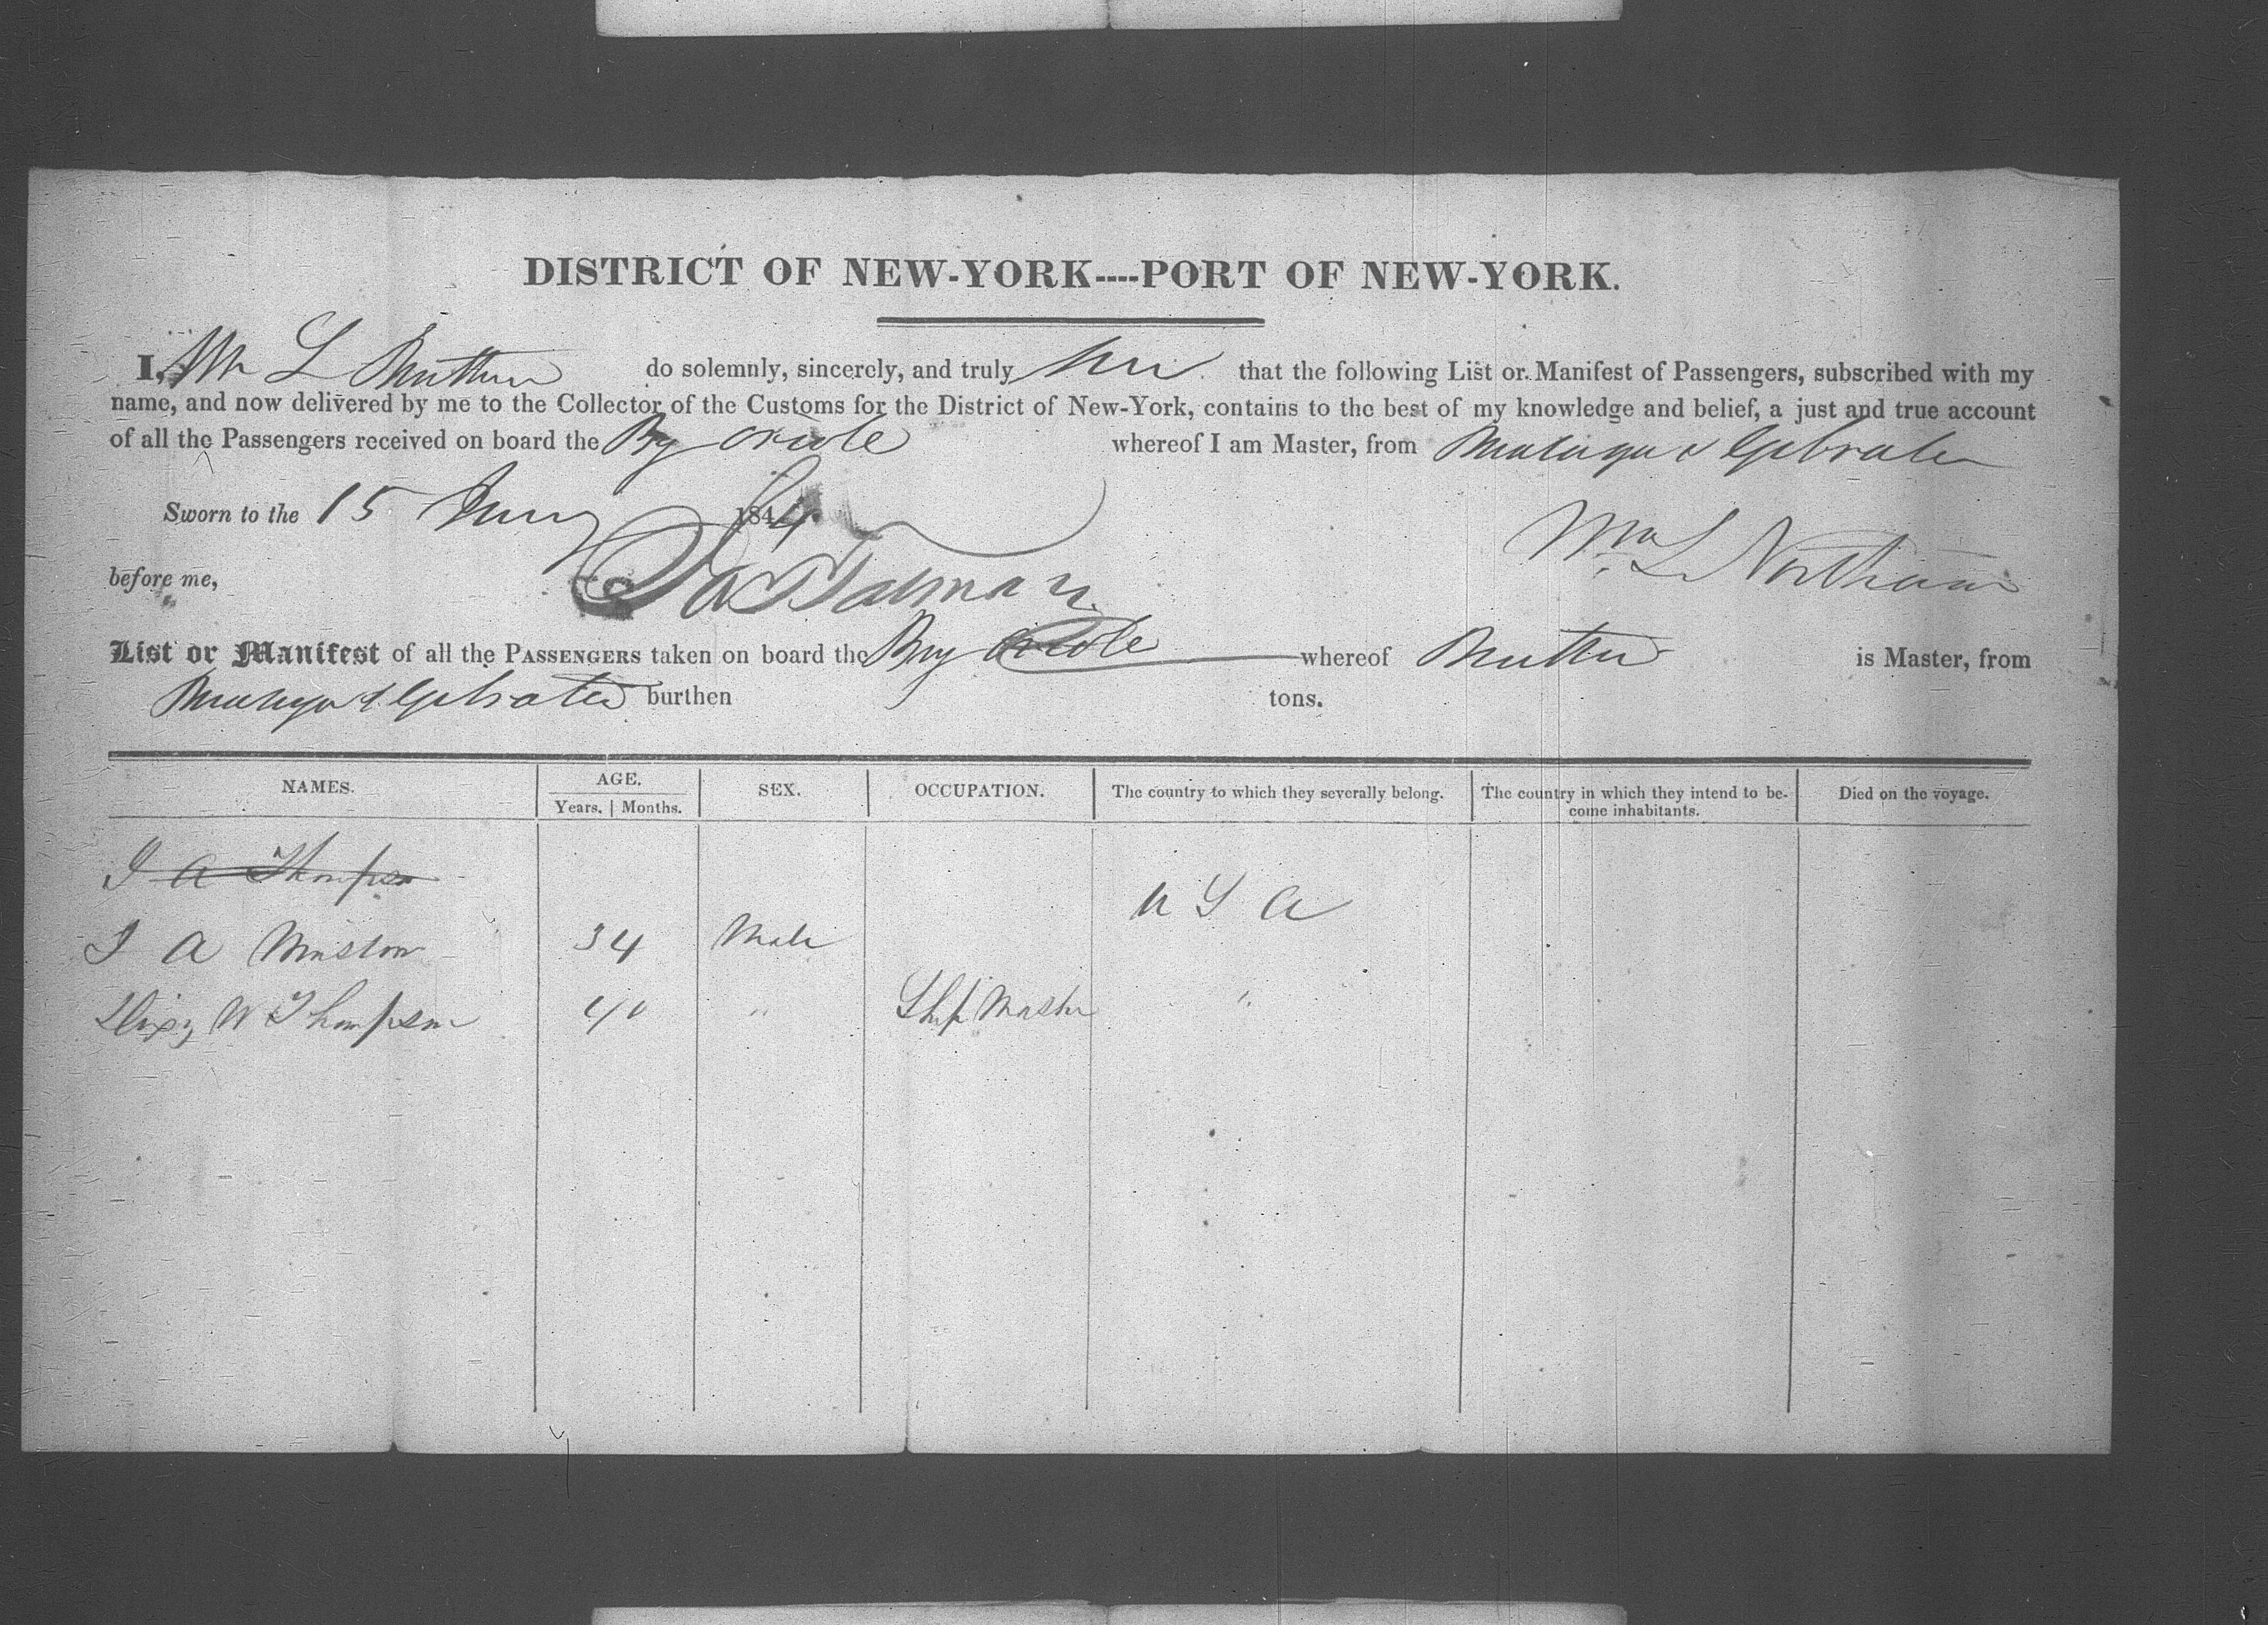 DISTRICT OF NEW-YORK----PORT OF NEW-YORK.
I, Wm L do solemnly, sincerely, and truly that the following List or Manifest of Passengers, subscribed with my
name, and now delivered by me to the Collector of the Customs for the District of New-York, contains to the best of my knowledge and belief, a just and true account
of all the Passengers received on board the whereof I am Master, from Malaga & Gibralter
Sworn to the 15 184
before me,
Wm L Northam
List or Manifest of all the PASSENGERS taken on board the whereof is Master, from
Malaga & burthen tons.
NAMES. AGE. SEX. OCCUPATION. The country to which they severally belong. The country in which they intend to be- Died on the voyage.
Years. Months. come inhabitants.
J A Thompson
U S A
J A 34 Male
W Thompson 40 " Ship Master "